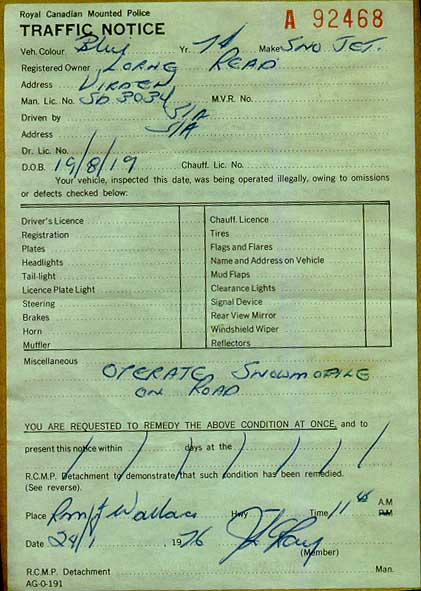 Royal Canadian Mounted Police
TRAFFIC NOTICE
A 92468
Veh. Colour Blue Yr. 74 Make SNO JET.
Registered Owner LORNE READ
Address VIRDEN
Man. Lic. No. SD 3034 M.V.R. No.
Driven by S/A
Address S/A
Dr. Lic. No.
D.O.B. 19/8/19 Chauff. Lic. No.
Your vehicle, inspected this date, was being operated illegally, owing to omissions
or defects checked below:
Driver's Licence Chauff. Licence
Registration Tires
Plates Flags and Flares
Headlights Name and Address on Vehicle
Tail-light Mud Flaps
Licence Plate Light Clearance Lights
Steering Signal Device
Brakes Rear View Mirror
Horn Windshield Wiper
Muffler Reflectors
Miscellaneous
OPERATE SNOWMOBILE
ON ROAD
YOU ARE REQUESTED TO REMEDY THE ABOVE CONDITION AT ONCE, and to
present this notice within days at the
R.C.M.P. Detachment to demonstrate that such condition has been remedied.
(See reverse).
Place Wallace Hwy Time 11 A.M
P.M
Date 24/1 1976
(Member)
R.C.M.P. Detachment Man.
AG-O-191